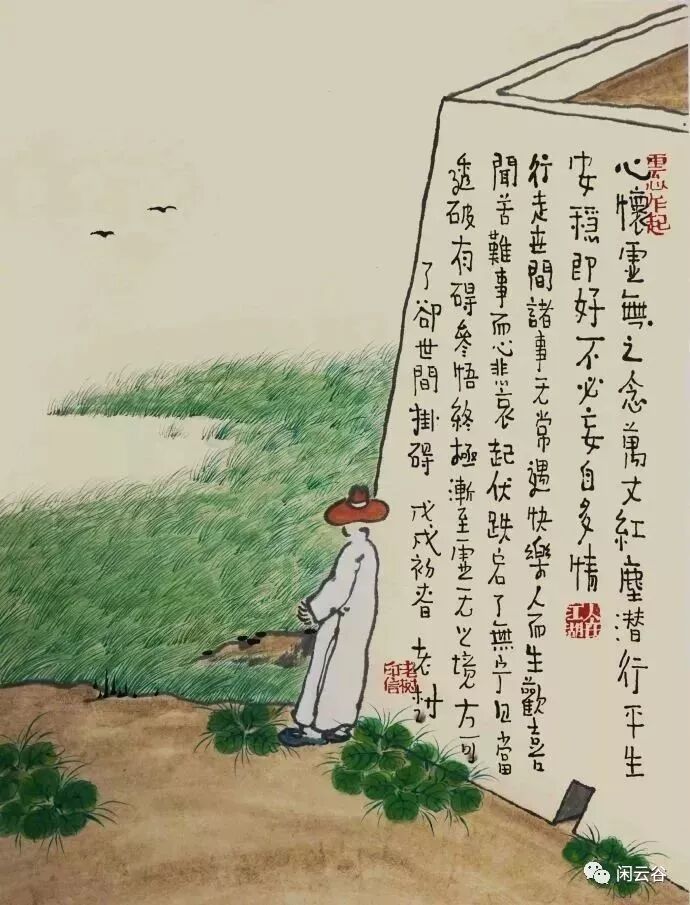 心懷虛無之念萬丈紅塵潜行平生
安穩即好不必妄自多情
行走世間諸事无常遇快樂人而生歡喜
聞苦難事而心悲哀起伏跌宕了無宁日當
透破有碍參悟終極漸至虛无之境方可
了卻世間掛碍 戊戌初春 老树
人在江湖
老樹印信
闲云谷